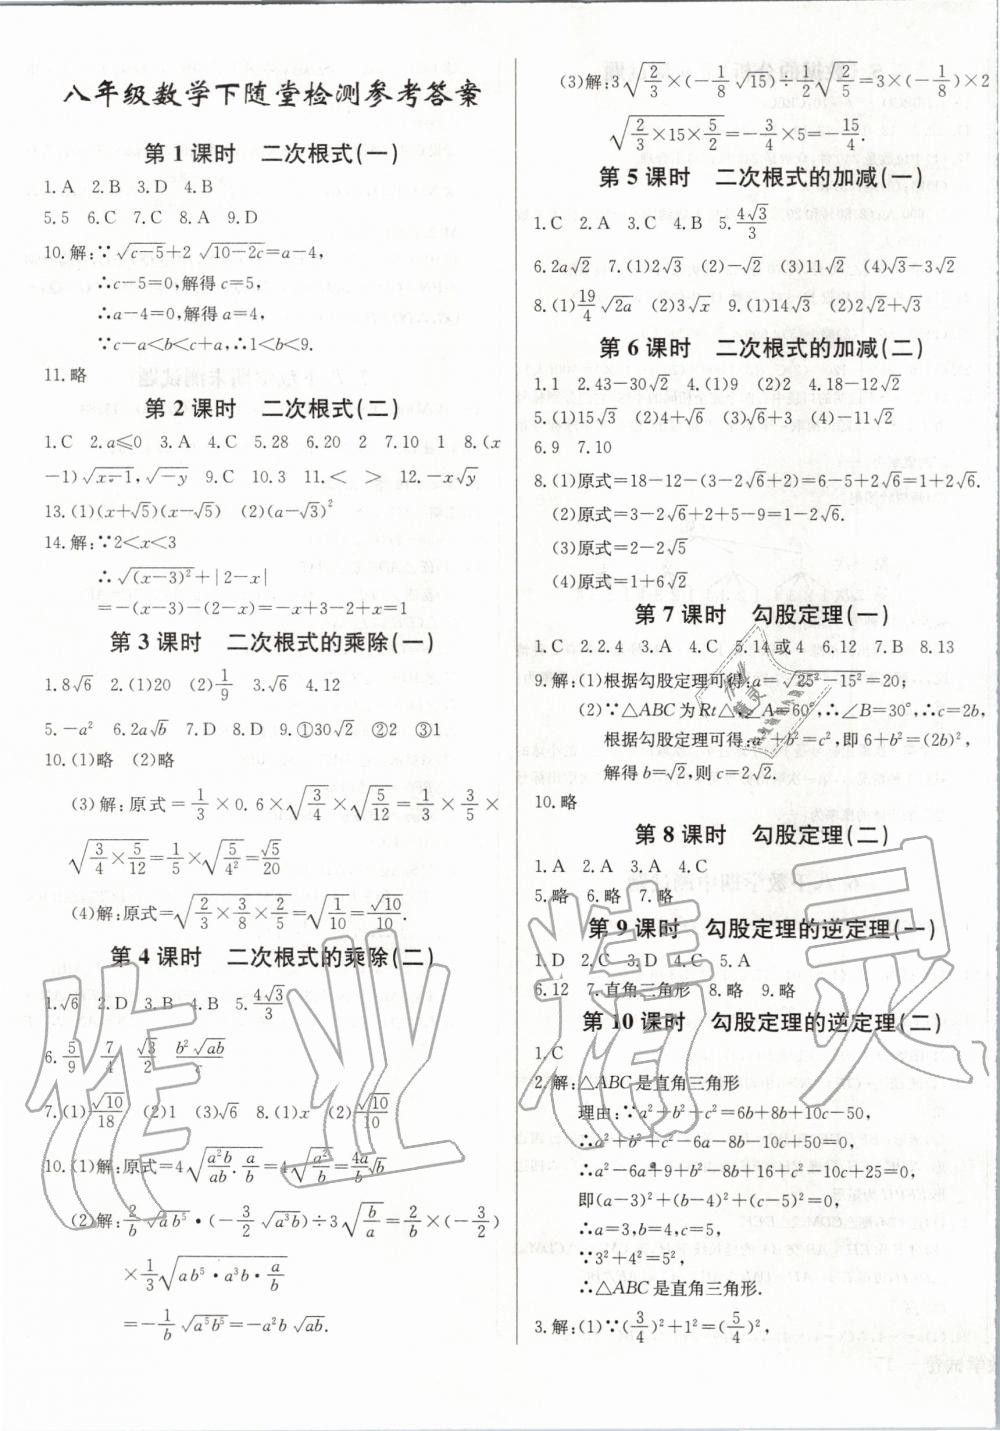 八年级数学下随堂检测参考答案
第1课时　二次根式(一)
1.A　2.B　3.D　4.B
5.5　6.C　7.C　8.A　9.D
10.解:∵√(c-5)+2√(10-2c)=a-4,
∴c-5=0,解得c=5,
∴a-4=0,解得a=4,
∵c-a<b<c+a,∴1<b<9.
11.略
第2课时　二次根式(二)
1.C　2.a⩽0　3.A　4.C　5.28　6.20　2　7.10　1　8.(x
-1)√(x-1),√(-y)　9.C　10.3　11.<　>　12.-x√y
13.(1)(x+√5)(x-√5)　(2)(a-√3)²
14.解:∵2<x<3
∴√((x-3)²)+|2-x|
=-(x-3)-(2-x)=-x+3-2+x=1
第3课时　二次根式的乘除(一)
1.8√6　2.(1)20　(2)1/9　3.√6　4.12
5.-a²　6.2a√b　7.D　8.D　9.①30√2　②2　③1
10.(1)略　(2)略
(3)解:原式=1/3×0.6×√(3/4)×√(5/12)=1/3×3/5×
√(3/4×5/12)=1/5×√(5/4²)=√5/20
(4)解:原式=√(2/3×3/8×2/5)=√(1/10)=√10/10.
第4课时　二次根式的乘除(二)
1.√6　2.D　3.B　4.B　5.4√3/3
6.5/9　7/4　√3/2　b²√(ab)/c
7.(1)√10/18　(2)1　(3)√6　8.(1)x　(2)√10/10
10.(1)解:原式=4√(a²b/ab.a)=4√(a²/b)=4a/b√b
(2)解:2/b√(ab⁵)·(-3/2√(a³b))÷3√(b/a)=2/b×(-3/2)
×1/3√(ab⁵·a³b·a/b)
=-1/b√(a⁵b⁵)=-a²b√(ab).
(3)解:3√(2/3)×(-1/8√15)÷1/2√(2/5)=3×(-1/8)×2
√(2/3×15×5/2)=-3/4×5=-15/4.
第5课时　二次根式的加减(一)
1.C　2.A　3.C　4.B　5.4√3/3
6.2a√2　7.(1)2√3　(2)-√2　(3)11√2　(4)√3-3√2
8.(1)19/4√(2a)　(2)3√x　9.(1)14√3　(2)2√2+√3
第6课时　二次根式的加减(二)
1.1　2.43-30√2　3.(1)9　(2)2　4.18-12√2
5.(1)15√3　(2)4+√6　(3)√6+3　(4)-11√2
6.9　7.10
8.(1)原式=18-12-(3-2√6+2)=6-5+2√6=1+2√6.
(2)原式=3-2√6+2+5-9=1-2√6.
(3)原式=2-2√5
(4)原式=1+6√2
第7课时　勾股定理(一)
1.C　2.2.4　3.A　4.C　5.14或4　6.12　7.B　8.13
9.解:(1)根据勾股定理可得:a=√(25²-15²)=20;
(2)∵△ABC为Rt△,∠A=60°,∴∠B=30°,∴c=2b,
根据勾股定理可得:a²+b²=c²,即6+b²=(2b)²,
解得b=√2,则c=2√2.
10.略
第8课时　勾股定理(二)
1.A　2.A　3.A　4.C
5.略　6.略　7.略
第9课时　勾股定理的逆定理(一)
1.D　2.C　3.D　4.C　5.A
6.12　7.直角三角形　8.略　9.略
第10课时　勾股定理的逆定理(二)
1.C
2.解:△ABC是直角三角形
理由:∵a²+b²+c²=6b+8b+10c-50,
∴a²+b²+c²-6a-8b-10c+50=0,
∴a²-6a+9+b²-8b+16+c²-10c+25=0,
即(a-3)²+(b-4)²+(c-5)²=0,
∴a=3,b=4,c=5,
∵3²+4²=5²,
∴△ABC是直角三角形.
3.解:(1)∵(3/4)²+1²=(5/4)²,
作业精灵